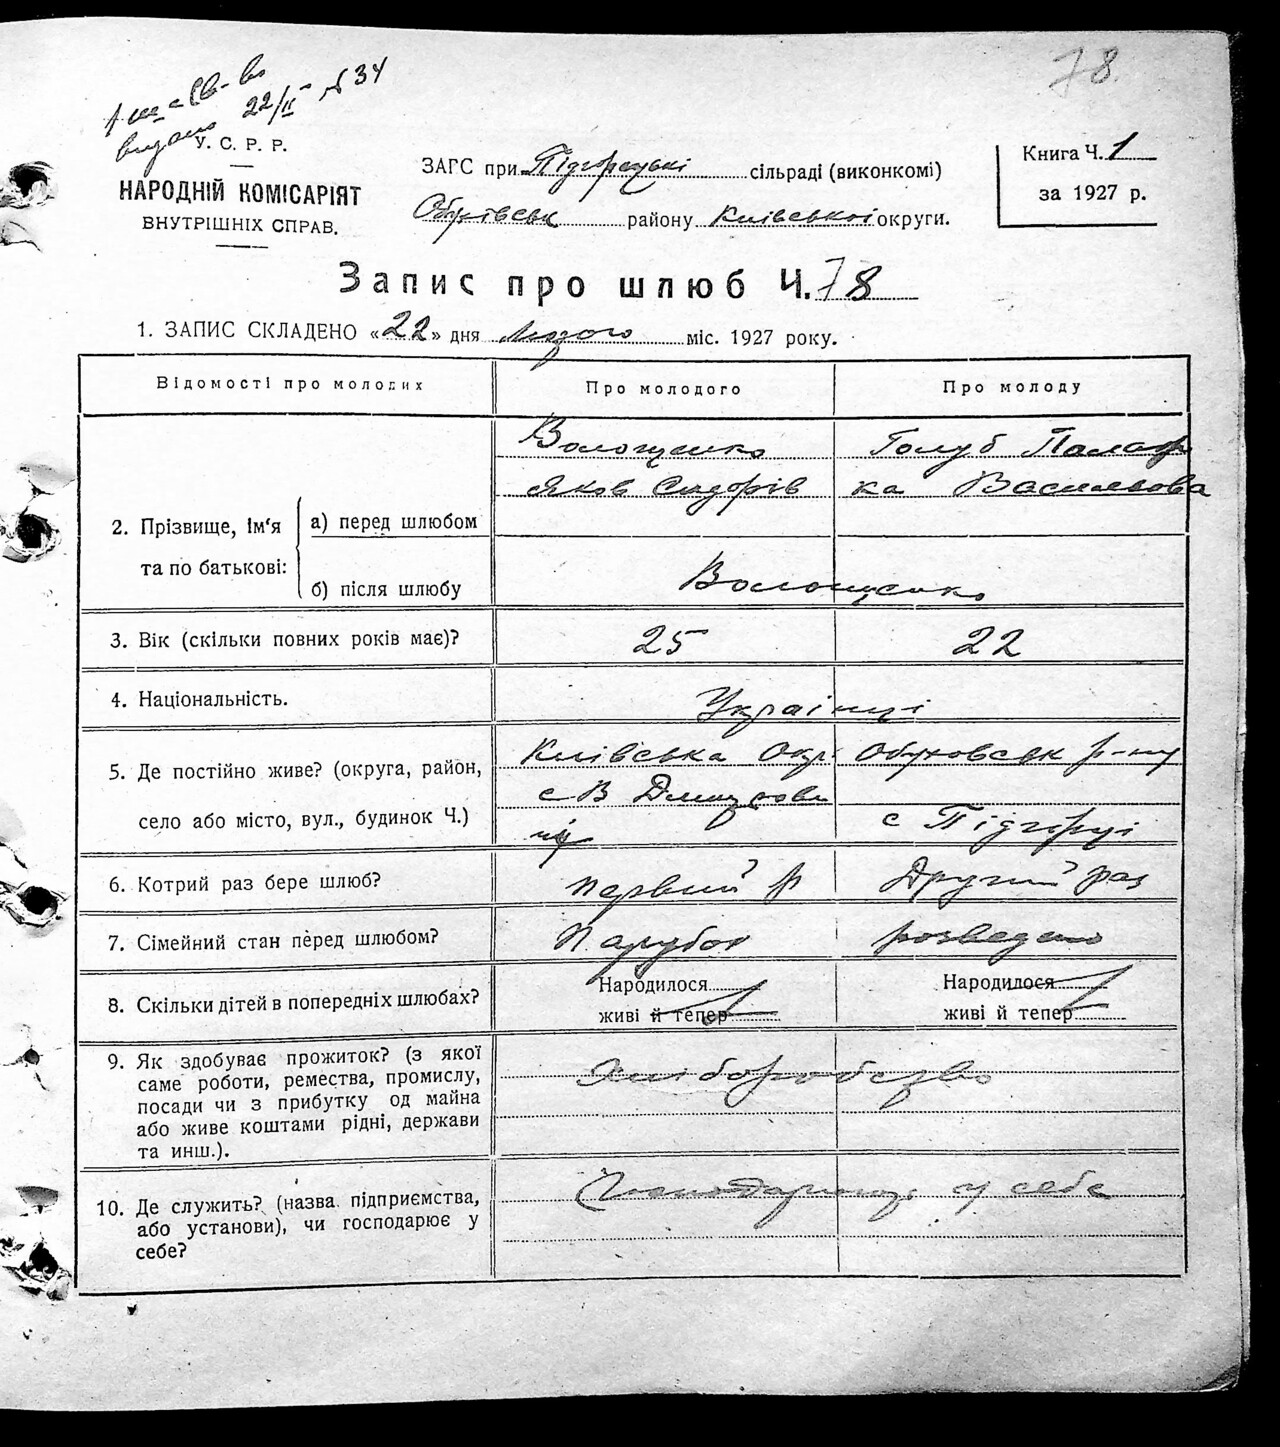 78.
видано 22/II № 34
У. С. Р. Р.
НАРОДНІЙ КОМІСАРІЯТ
ВНУТРІШНІХ СПРАВ.
ЗАГС при Підгорецькі сільраді (виконкомі)
Обухівськ району Київської округи.
Книга Ч. 1
за 1927 р.
Запис про шлюб Ч. 78
1. ЗАПИС СКЛАДЕНО «22» дня лютого міс. 1927 року.
Відомості про молодих
Про молодого
Про молоду
2. Прізвище, ім'я
та по батькові:
а) перед шлюбом
Волощенко
Яков Сидорів
Голуб Палаж
ка Васильова
б) після шлюбу
Волощенко
3. Вік (скільки повних років має)?
25
22
4. Національність.
Українці
5. Де постійно живе? (округа, район,
село або місто, вул., будинок Ч.)
Київська Окр.
с В Дмитрови
чі
Обуховськ р-ну
с Підгірці
6. Котрий раз бере шлюб?
первий р
Другий раз
7. Сімейний стан перед шлюбом?
Парубок
розведено
8. Скільки дітей в попередніх шлюбах?
Народилося
живі й тепер
Народилося
живі й тепер
9. Як здобуває прожиток? (з якої
саме роботи, ремества, промислу,
посади чи з прибутку од майна
або живе коштами рідні, держави
та инш.).
Хліборобство
10. Де служить? (назва підприємства,
або установи), чи господарює у
себе?
у себе